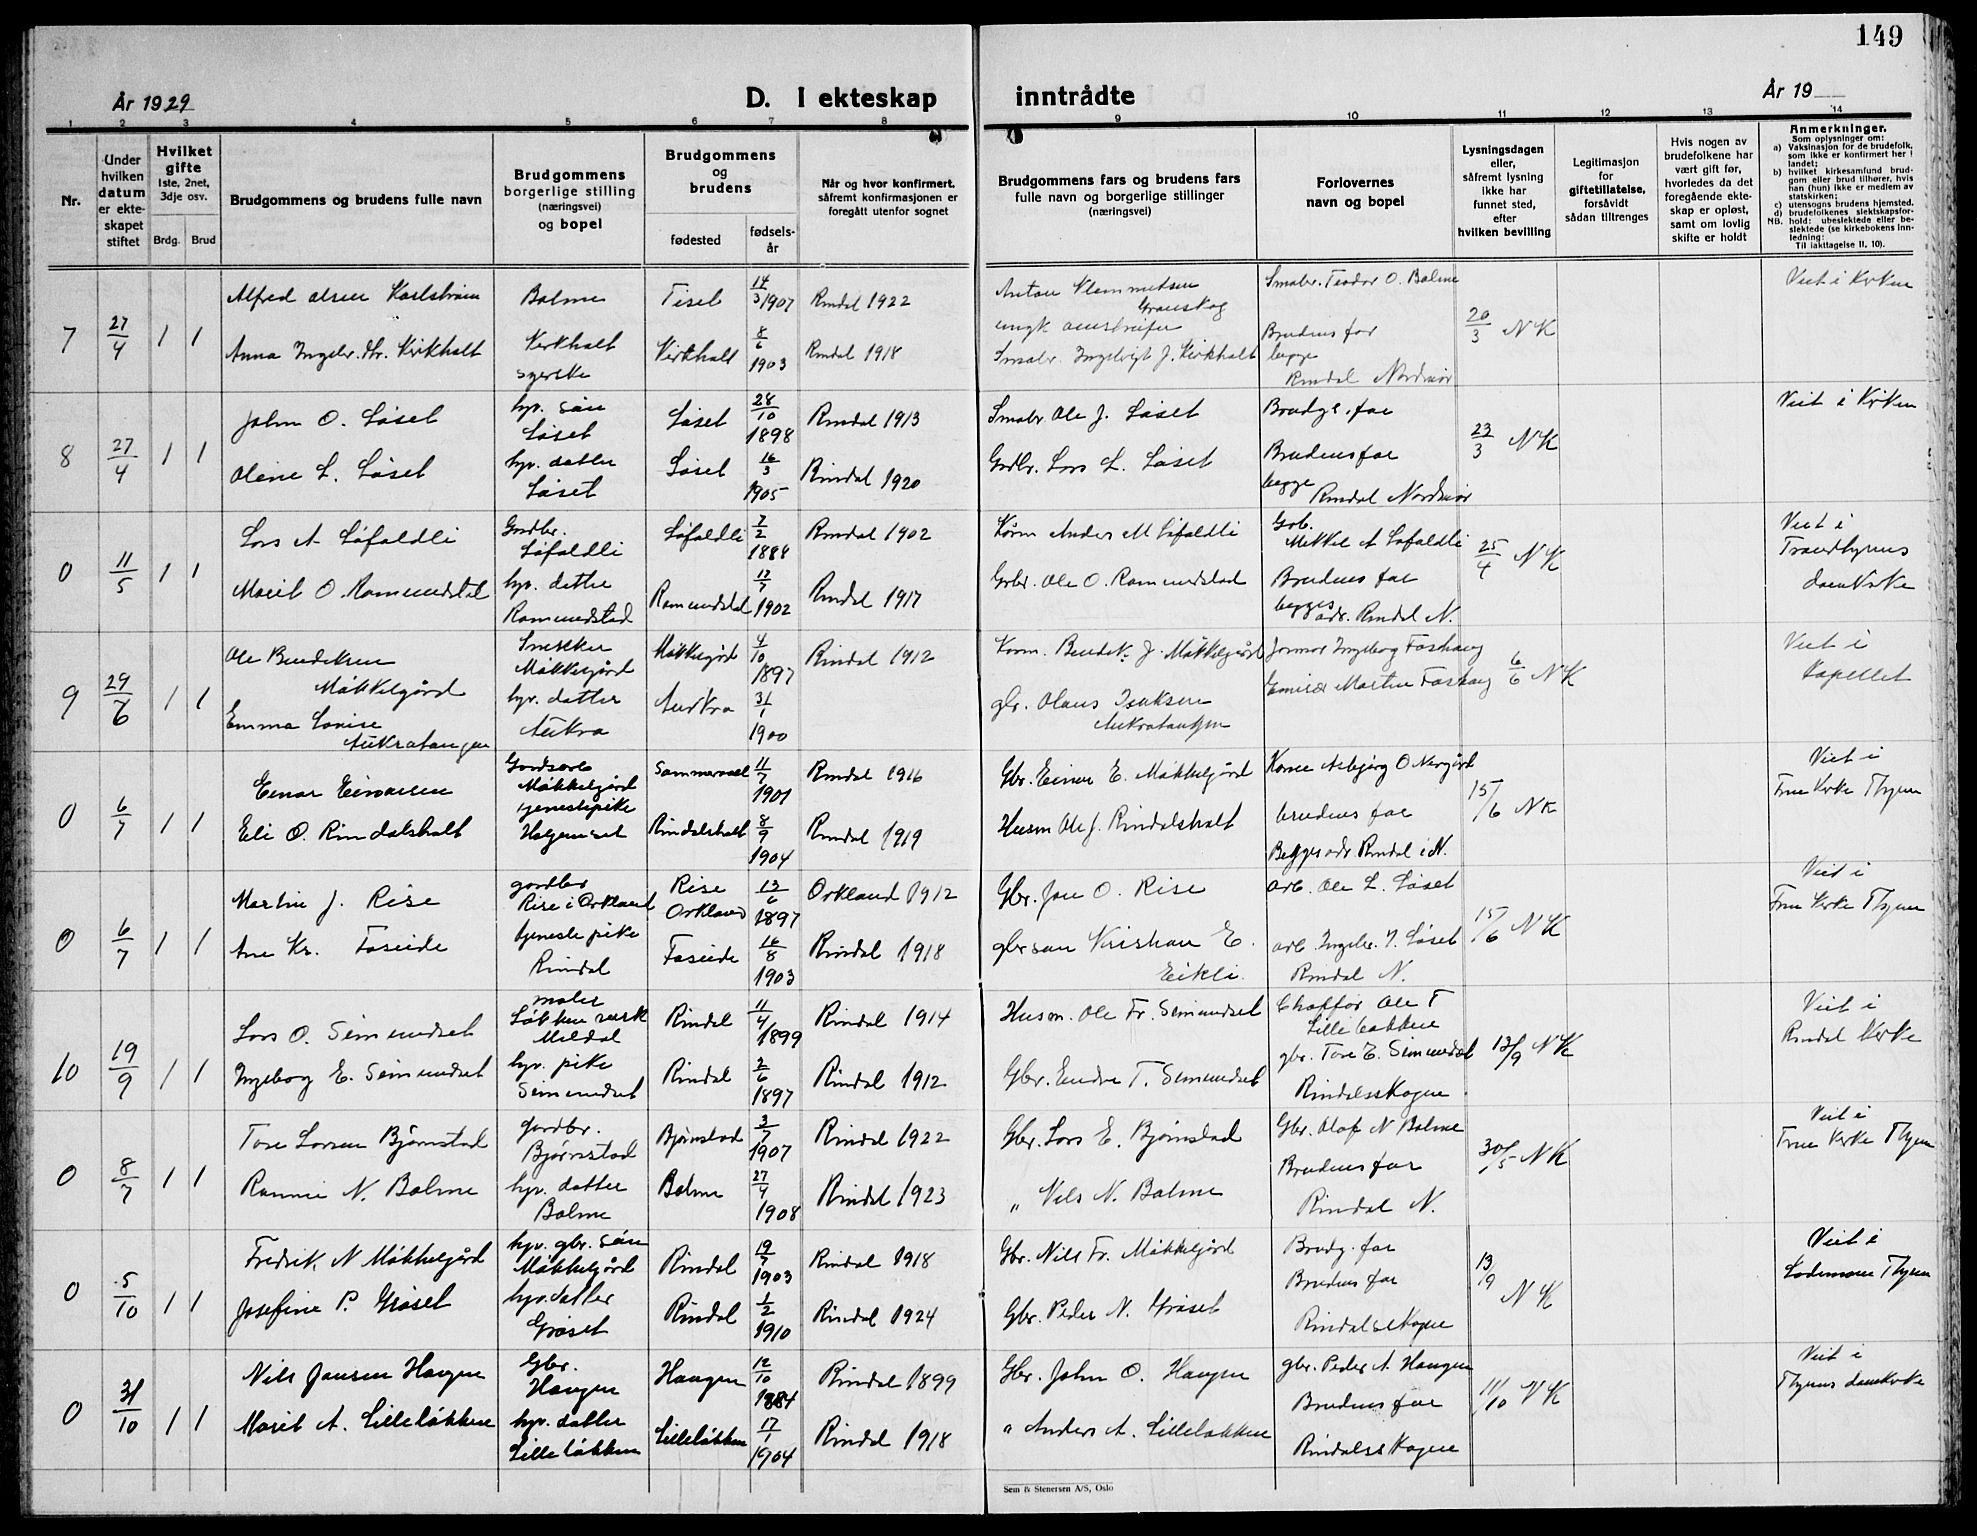 149
År 1929
D. I ekteskap inntrådte
År 19
1 2 3 4 5 6 7 8 9 10 11 12 13 14
Nr.
Under hvilken datum er ekteskapet stiftet
Hvilket gifte
1ste, 2net, 3dje osv.
Brdg. Brud
Brudgommens og brudens fulle navn
Brudgommens borgerlige stilling (næringsvei) og bopel
Brudgommens og brudens
fødested
fødselsår
Når og hvor konfirmert, såfremt konfirmasjonen er foregått utenfor sognet
Brudgommens fars og brudens fars fulle navn og borgerlige stillinger (næringsvei)
Forlovernes navn og bopel
Lysningsdagen eller, såfremt lysning ikke har funnet sted, efter hvilken bevilling
Legitimasjon for giftetillatelse, forsåvidt sådan tiltrenges
Hvis nogen av brudefolkene har vært gift før, hvorledes da det foregående ekteskap er opløst, samt om lovlig skifte er holdt
Anmerkninger.
Som oplysninger om:
a) Vaksinasjon for de brudefolk, som ikke er konfirmert her i landet;
b) hvilket kirkesamfund brudgom eller brud tilhører, hvis han (hun) ikke er medlem av statskirken;
c) utensogns brudens hjemsted.
d) brudefolkenes slektskapsforhold: ubeslektede eller beslektede (se kirkebokens Innledning:
NB.
Til iakttagelse II, 10).
7 27/4 1 1
Alfred Olsen Karlstrøm Bolme Tiset 14/3 1907 Rindal 1922
Anton Klemmetsen Granskog
Smabr. Teodor O. Bolme
20/3 NK
Viet i Kirken
Anna Ingebr. dtr. Kirkholt Kirkholt syerske Kirkholt 8/6 1903 Rindal 1918
Smabr. Ingebrigt J. Kirkholt
Brudens far
begge Rindal Nordmør
8 27/4 1 1
John O. Løset hjv. søn Løset Løset 28/10 1898 Rindal 1913
Smabr Ole J. Løset
Brudgs. far
23/3 NK
Viet i Kirken
Oline L. Løset hjv. datter Løset Løset 16/3 1905 Rindal 1920
Grdbr. Lars L. Løset
Brudens far
begge Rindal Nordmør
0 11/5 1 1
Lars A Løfaldli Grdbr. Løfaldli Løfaldli 7/2 1884 Rindal 1902
Kårm Anders M Løfaldli
Grb. Mikkel A Løfaldli
25/4 NK
Viet i Trondhjems domkirke
Marit O. Romundstad hjv. datter Romundstad Romundstad 17/7 1902 Rindal 1917
Grbr. Ole O. Romundstad
Brudens far
begges adr. Rindal N.
9 29/6 1 1
Ole Bendiksen Møkkelgård Snekker Møkkelgård Møkkelgård 4/10 1897 Rindal 1912
Kårm. Bendik J. Møkkelgård
Jormor Ingeborg Foshaug
6/6 NK
Viet i Kapellet
Emma Lovise Aukratangen hjv. datter Aukra Aukra 31/1 1900
gbr. Olaus Isaksen Aukratangen
Emisær Martin Foshaug
0 6/7 1 1
Einar Einarsen Gårdsarb Møkkelgård 11/7 1901 Rindal 1916
Gbr. Einar E. Møkkelgård
15/6 NK
Viet i Frue Kirke Thjem
Eli O. Rindalsholt tjenestepike Rindalsholt 8/9 1904 Rindal 1919
Husm Ole J. Rindalsholt
brudens far
Begges adr. Rindal i N.
0 6/7 1 1
Martin J. Rise gardbr Rise i Orkland Rise Orkland 12/6 1897 Orkland 1912
Gbr. Jon O. Rise
arb. Ole L. Løset
15/6 NK
Viet i Frue Kirke Thjem
Ane Kr. Foseide tjeneste pike Rindal Foseide 16/8 1903 Rindal 1918
gbr søn Kristian E. Eikli.
arb. Ingebr. J. Løset
Rindal N.
10 19/9 1 1
Lars O. Simundset maler Løkken verk Meldal Rindal 11/4 1899 Rindal 1914
Husm. Ole Fr. Simundset
Chaffør Ole T Lilleløkken
12/9 NK
Viet i Rindal Kirke
Ingeborg E. Simundset hjv. pike Simundset Rindal 2/6 1897 Rindal 1912
Gbr. Endre T. Simundset
gbr. Tore E. Simundset
Rindalsskogen
0 8/7 1 1
Tore Larsen Bjørnstad Gardbr. Bjørnstad Bjørnstad 3/7 1907 Rindal 1922
Gbr. Lars E. Bjørnstad
Gbr. Olaf N Bolme
30/5 NK
Viet i Frue Kirke Thjem
Rannie N. Bolme hjv. datter Bolme Bolme 27/4 1908 Rindal 1923
" Nils N. Bolme
Brudens far
Rindal N.
0 5/10 1 1
Fredrik N Møkkelgård hjv. gbr. søn Møkkelgård Rindal 19/7 1903 Rindal 1918
Gbr. Nils Fr. Møkkelgård
Brudg. far
13/9 NK
Viet i Lademoen Thjem
Josefine P. Grøset hjv. datter Grøset Rindal 1/2 1910 Rindal 1924
Gbr. Peder N. Grøset
Brudens far
Rindalsskogen
0 31/10 1 1
Nils Jonsen Haugen Gbr. Haugen Haugen 12/10 1884 Rindal 1899
Gbr. John O. Haugen
gbr. Peder A. Haugen
11/10 NK
Viet i Thjems domkirke
Marit A. Lilleløkken hjv. datter Lilleløkken Lilleløkken 17/1 1904 Rindal 1918
" Anders A. Lilleløkken
Brudens far
Rindalsskogen
Sem & Stenersen A/S, Oslo